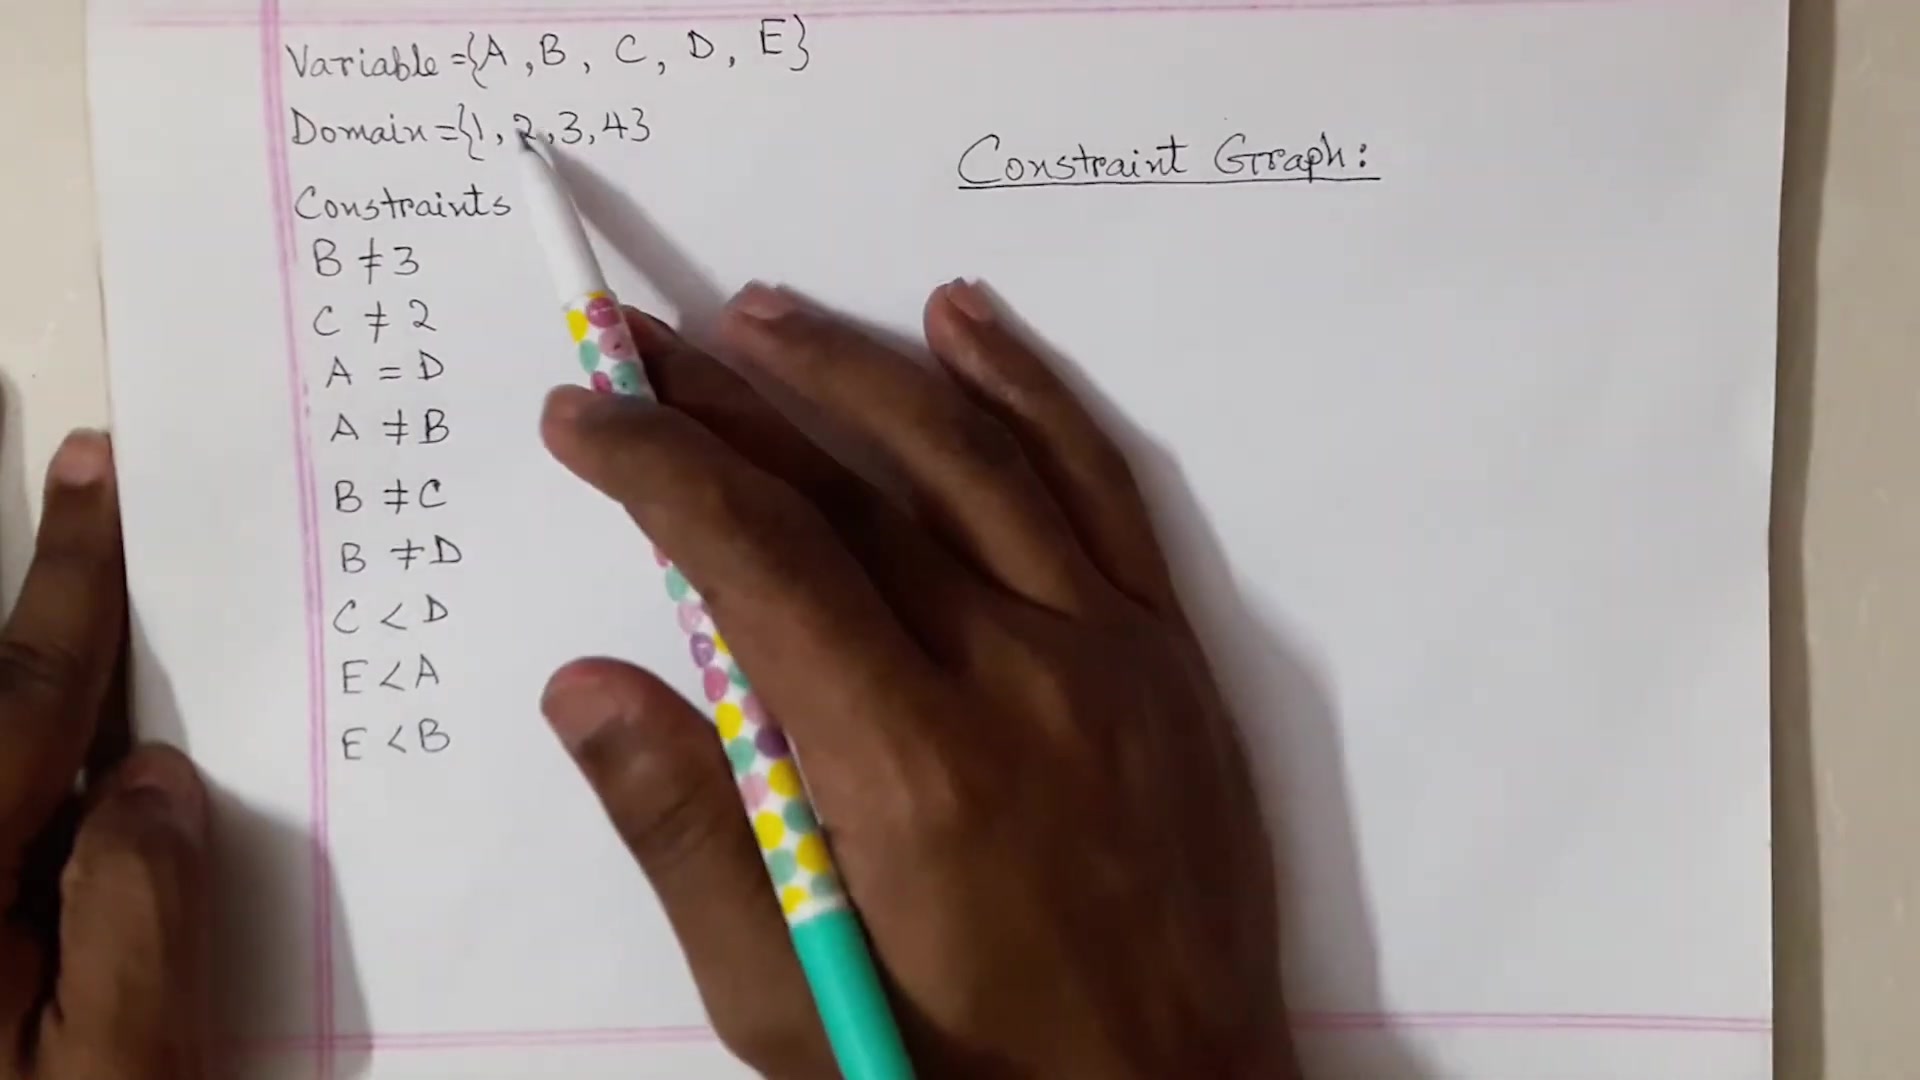 Variable = {A, B, C, D, E}
Domain = {1, 2, 3, 4}
Constraints
B ≠ 3
C ≠ 2
A = D
A ≠ B
B ≠ C
B ≠ D
C < D
E < A
E < B
Constraint Graph: